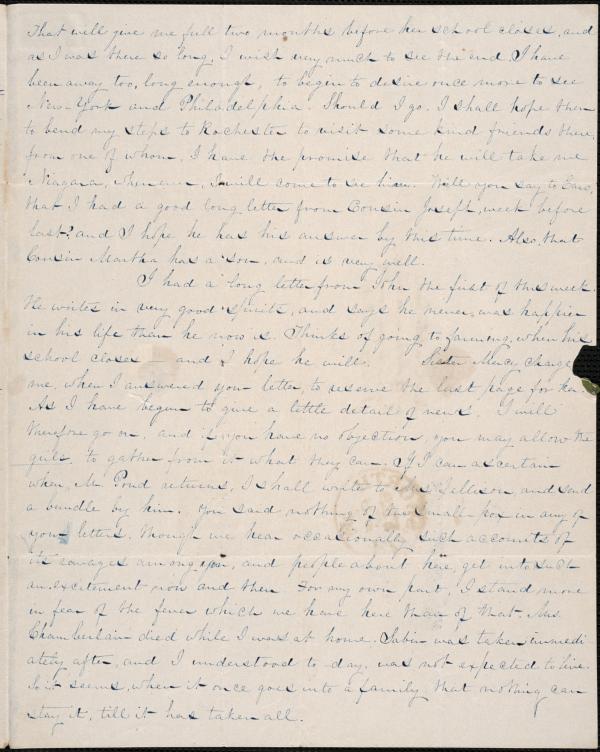 That will give me full two months before her school closes, and
as I was there so long, I wish very much to see the end I have
been away too, long enough, to begin to desire once more to see
New-York and Philadelphia. Should I go. I shall hope then
to bend my steps to Rochester to visit some kind friends there,
from one of whom, I have the promise that he will take me
Niagara, whenever, I will come to see him. Will you say to
that I had a good long letter from Cousin Joseph, week before
last? and I hope he has his answer by this time. Also, that
Cousin Martha has a son, and is very well.
I had a long letter from John the first of this week.
He writes in very good spirits, and says he never was happier
in his life than he now is. Thinks of going to farming, when his
school closes — and I hope he will. Sister Mercy charge
me, when I answered your letter, to reserve the last page for her.
As I have begun to give a little detail of news. I will
therefore go on, and if you have no objection, you may allow the
girls to gather from it what they can. If I can ascertain
when, Mr. Pond returns, I shall write to Mrs Jillison, and send
a bundle by him. You said nothing of the small-pox in any of
your letters, though we hear occasionally such accounts of
its ravages among you, and people about here, get into such
an excitement now and then. For my own part, I stand more
in fear of the fever which we have here than of that. Mrs.
Chamberlain died while I was at home. Sabin was taken immedi
ately after, and I understood to-day, was not expected to live.
So it seems, when it once goes into a family, that nothing can
stay it, till it has taken all.